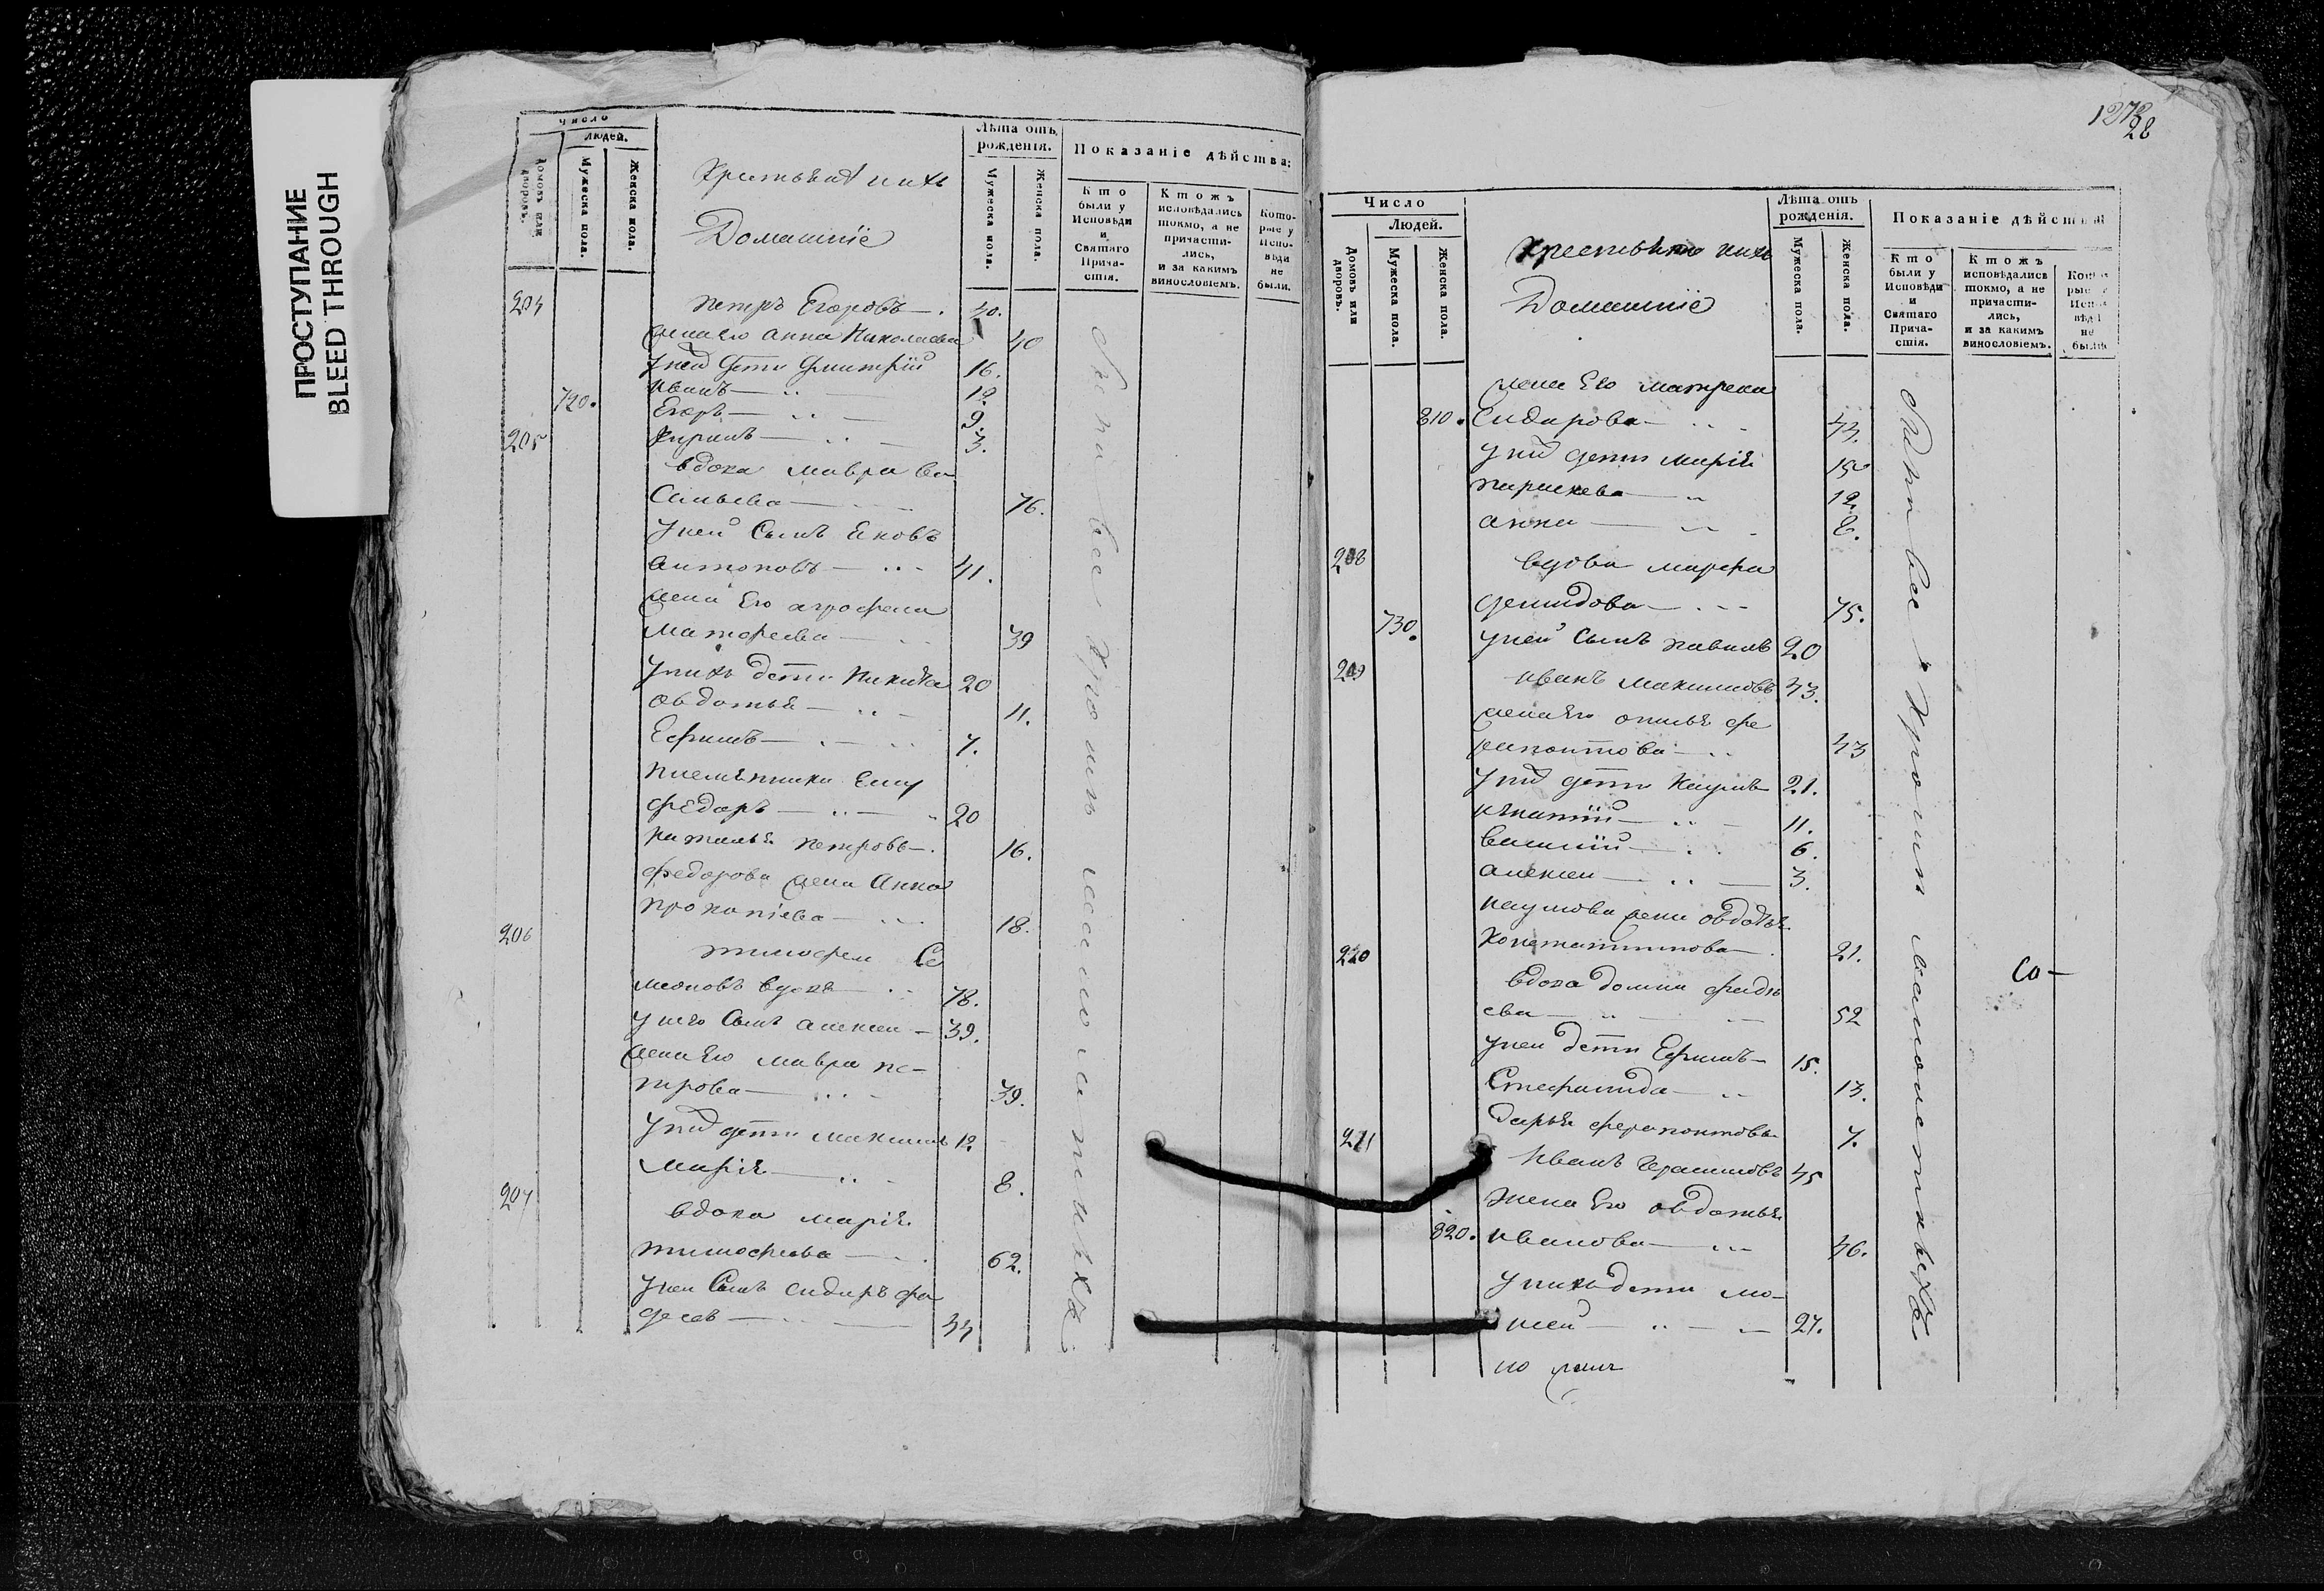 ПРОСТУПАНИЕ
BLEED THROUGH
Число
людей.
Домовъ или дворовъ.
Мужеска пола.
Женска пола.
Домашніе
Лѣта отъ рожденія.
Мужеска пола.
Женска пола.
Показаніе дѣйства:
Кто были у Исповѣди и Святаго Прича-стія.
Ктожъ исповѣдались токмо, а не причасти-лись, и за какимъ винословіемъ.
Кото-рые у Испо-вѣди не были.
204 петръ Егоровъ 40.
жена Его анна Николаева 40
у нихъ дети Дмитрій 16.
720. иванъ 12.
Егоръ 9.
205 3.
вдова мавра Ва
сильева 76.
у ней Сынъ Яковъ
антоновъ 41.
жена Его агрофена
матфеева 39
у нихъ дети Никита 20
овдотья 11.
Ефимъ 7.
племянники Ему
федоръ 20
наталья петровы 16.
федорова жена Анна
прокопіева 18.
206
тимофей Се
меновъ вдовъ 78.
у него Сынъ алексей 39.
жена Его мавра пе-
трова 39.
у нихъ дети максимъ 12.
марія 8.
207
вдова марія
тимофеева 62.
у ней Сынъ сидоръ фа
деевъ 44
1273
28
Число
Людей.
Домовъ или дворовъ.
Мужеска пола.
Женска пола.
Домашніе
Лѣта отъ рожденія.
Мужеска пола.
Женска пола.
Показаніе дѣйства
Кто были у Исповѣди и Святаго Прича-стія.
Ктожъ исповѣдались токмо, а не причасти-лись, и за какимъ винословіемъ.
жена Его матрена
810. Сидарова 43.
у нихъ дети марія 15
параскева 12.
анна 8.
208 вдова марфа
демидова 75.
730. у ней Сынъ павилъ 20
209 иванъ максимовъ 43.
жена Его
43
у нихъ дети Наумъ 21.
игнатій 11.
василій 6.
алексей 3.
наумова жена овдотья
Константинова 21.
220
вдова домна фадѣ
ева 52
у ней дети Ефимъ 15.
Стефанида 13.
дарья ферапонтовы 7.
221
Иванъ Герасимовъ 45
жена Его овдотья
820. иванова 46.
у нихъ дети мо-
исей 27.
Со-